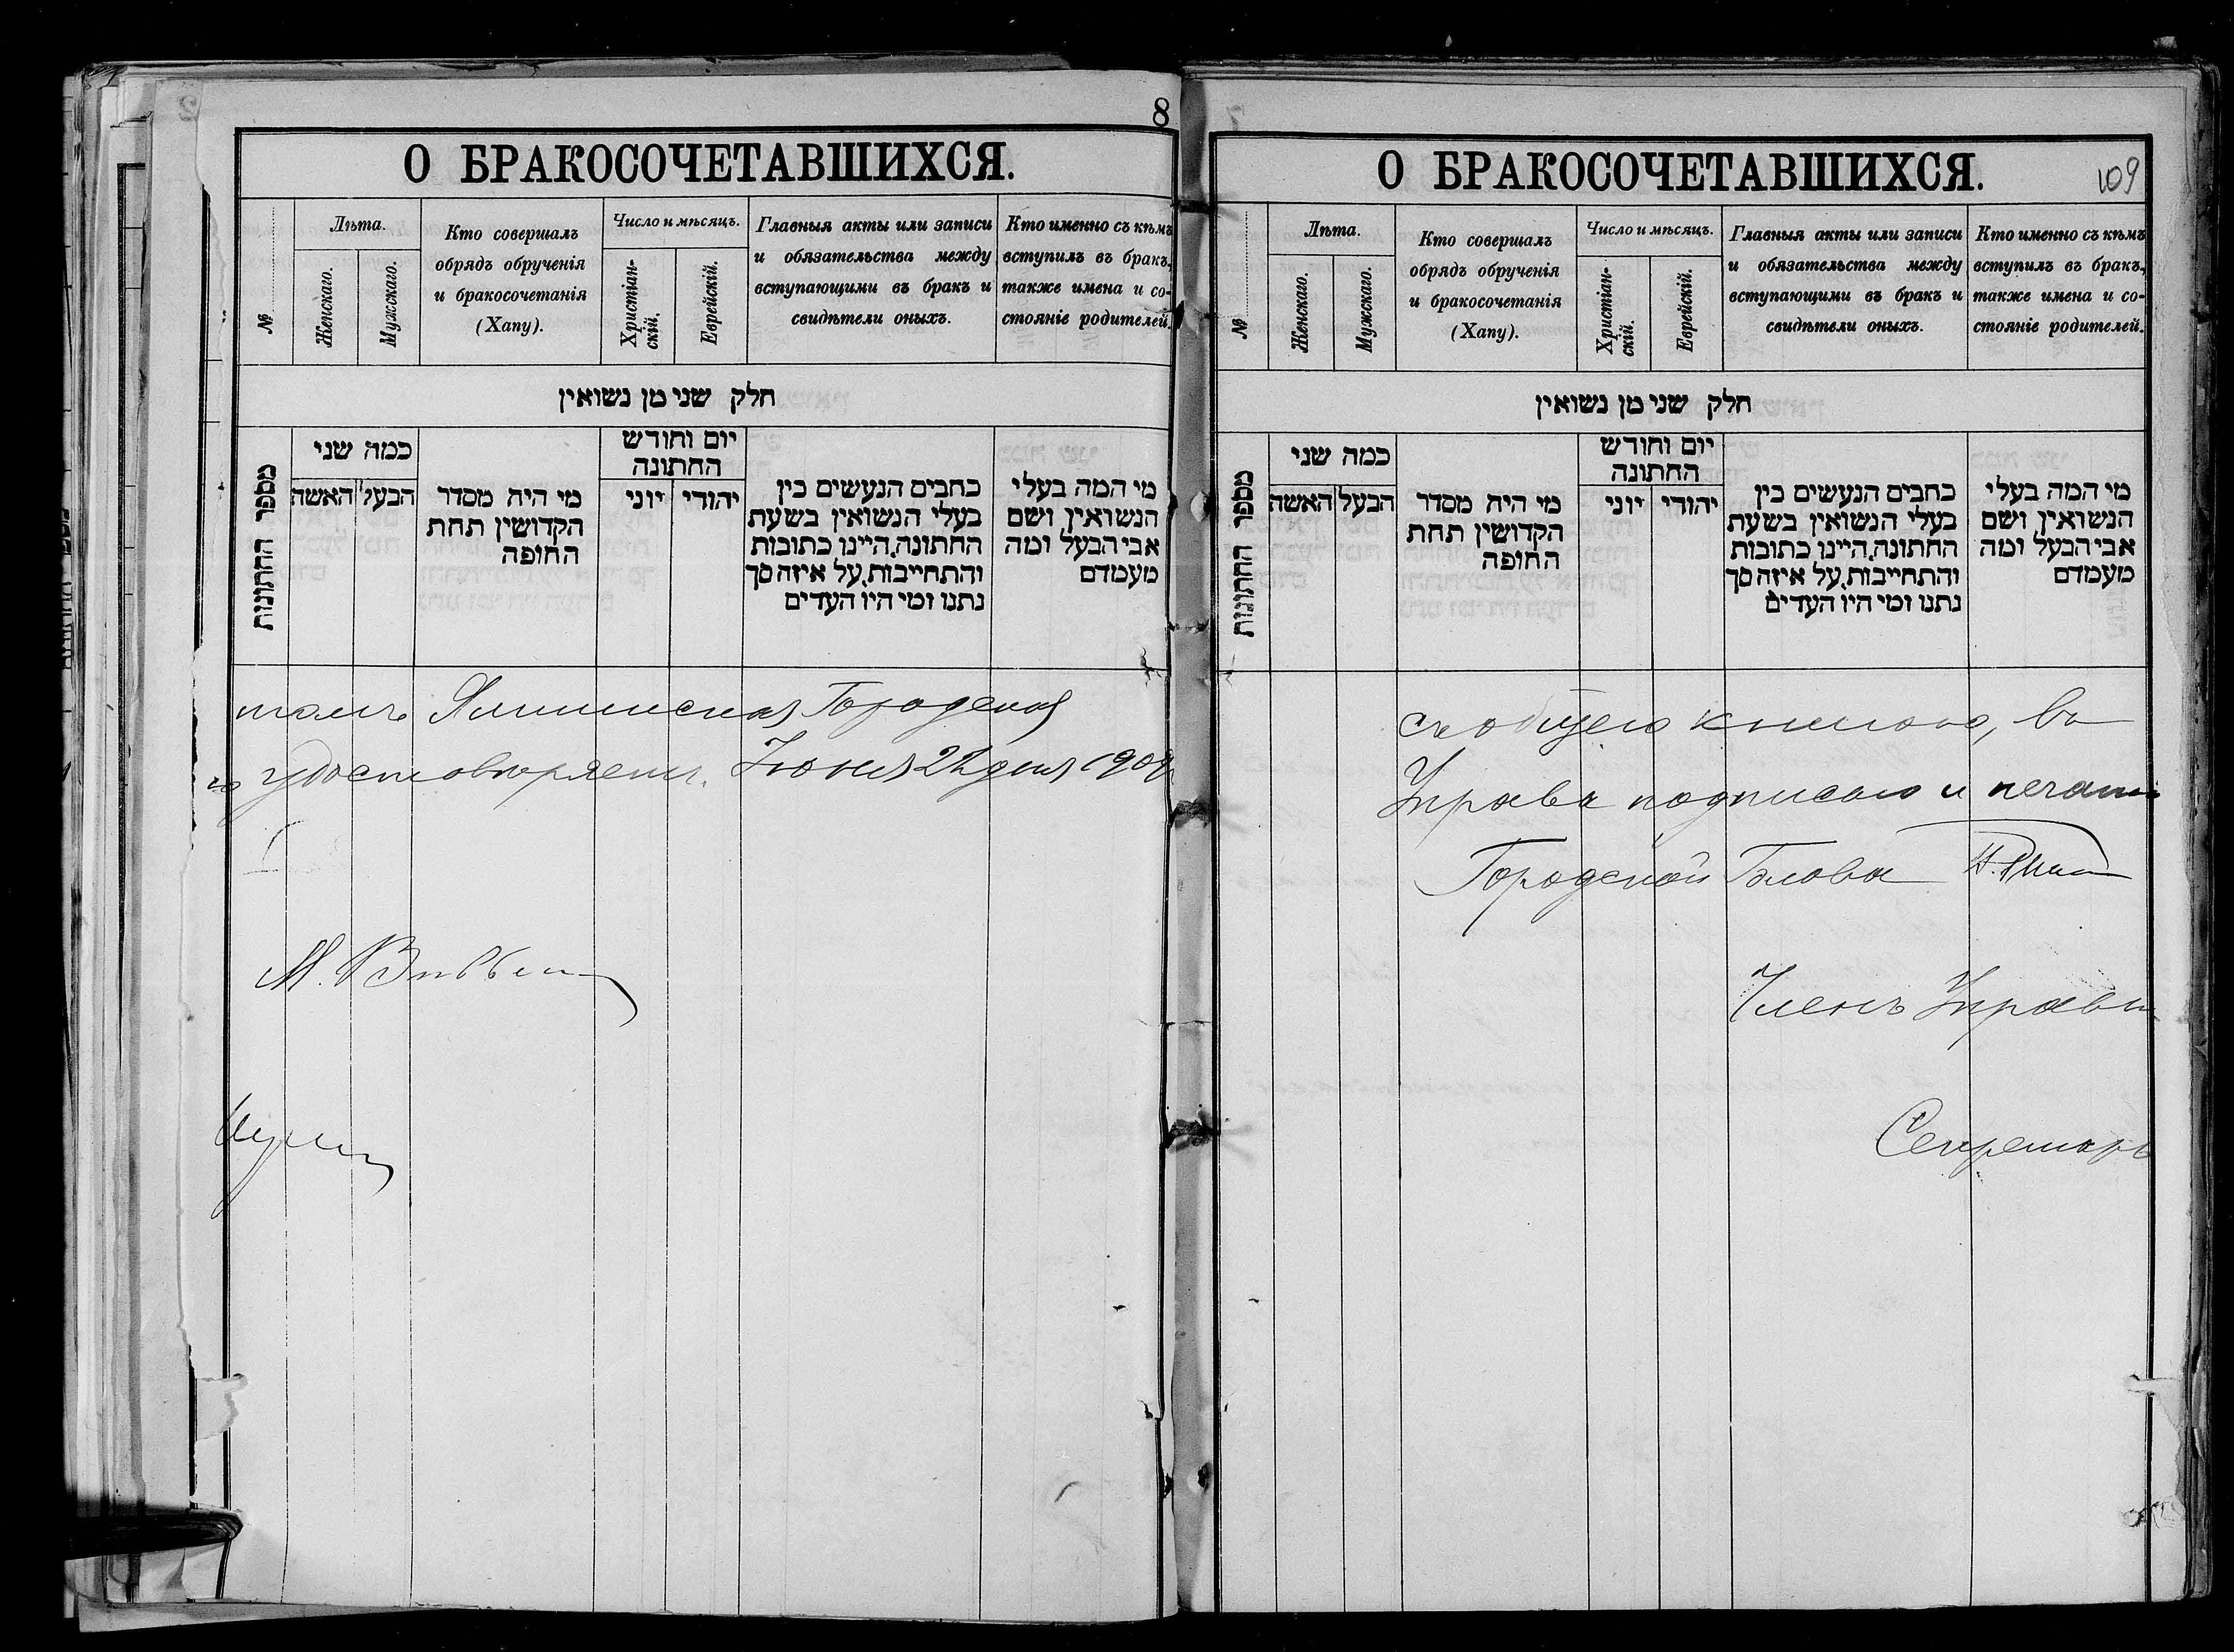 8
О БРАКОСОЧЕТАВШИХСЯ.
№
Лѣта.
Женскаго.
Мужскаго.
Кто совершалъ
обрядъ обрученія
и бракосочетанія
(Хапу).
Число и мѣсяцъ.
Христіан-
скій.
Еврейскій.
Главныя акты или записи
и обязательства между
вступающими въ бракъ и
свидѣтели оныхъ.
Кто именно съ кѣмъ
вступилъ въ бракъ,
также имена и со-
стояніе родителей.
חלק שני מן נשואין
מספר החתונות
כמה שני
האשה
הבעל
מי היה מסדר
הקדושין תחת
החופה
יום וחודש
החתונה
יוני
יהודי
כתבים הנעשים בין
בעלי הנשואין בשעת
החתונה, היינו כתובות
והתחייבות, על איזה סך
נתנו ומי היו העדים
מי המה בעלי
הנשואין, ושם
אבי הבעל ומה
מעמדם
Городская
удостовѣряетъ. Іюня 22 дня 1909
М.
О БРАКОСОЧЕТАВШИХСЯ.
109
№
Лѣта.
Женскаго.
Мужскаго.
Кто совершалъ
обрядъ обрученія
и бракосочетанія
(Хапу).
Число и мѣсяцъ.
Христіан-
скій.
Еврейскій.
Главныя акты или записи
и обязательства между
вступающими въ бракъ и
свидѣтели оныхъ.
Кто именно съ кѣмъ
вступилъ въ бракъ,
также имена и со-
стояніе родителей.
חלק שני מן נשואין
מספר החתונות
כמה שני
האשה
הבעל
מי היה מסדר
הקדושין תחת
החופה
יום וחודש
החתונה
יוני
יהודי
כתבים הנעשים בין
בעלי הנשואין בשעת
החתונה, היינו כתובות
והתחייבות, על איזה סך
נתנו ומי היו העדים
מי המה בעלי
הנשואין, ושם
אבי הבעל ומה
מעמדם
книгою, въ
Управа подписью и печатью
Городской Голова
Членъ Управы
Секретарь